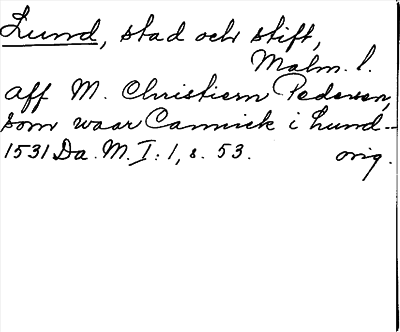 Lund, stad och stift,
Malm. l.
aff M. Christiern Pedersen,
som waar Cannick i Lund -
1531 Da. M. I: 1, s. 53. orig.